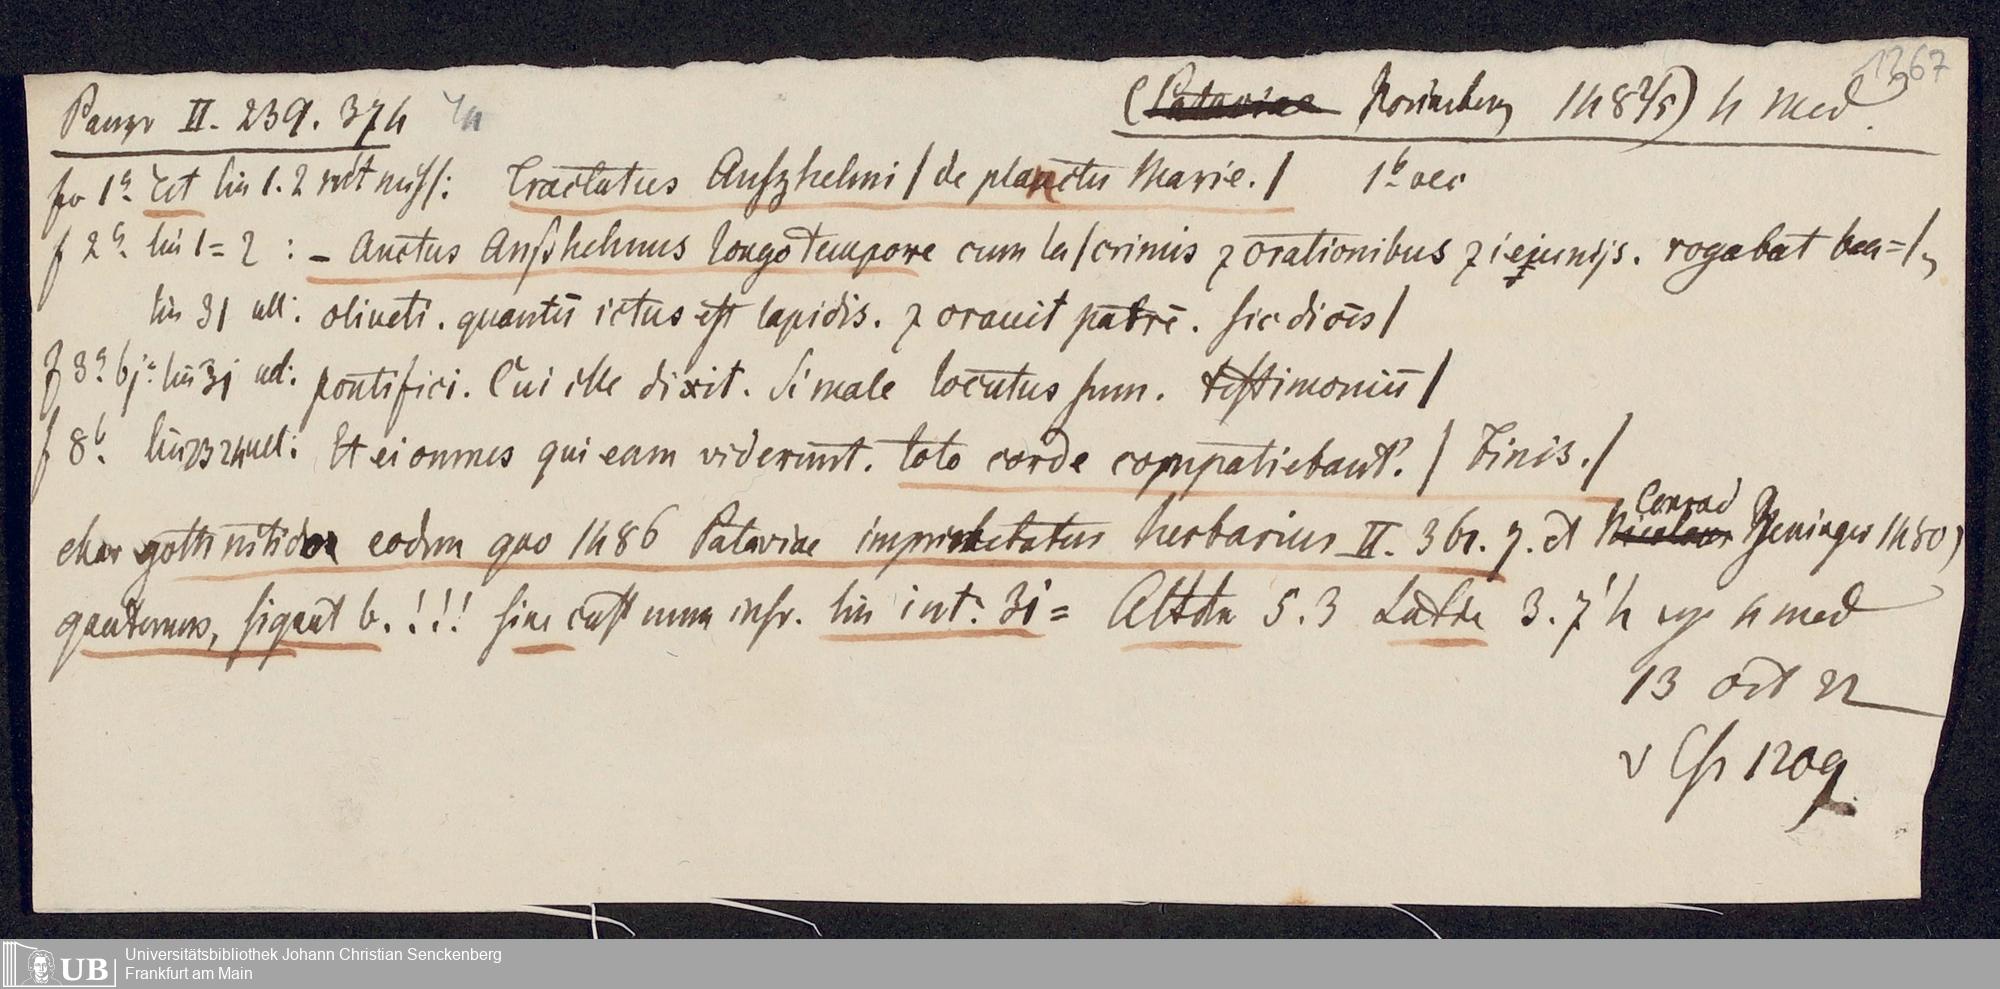 1267
Panzr II. 239. 374 (Patauiae Norimberg 148⅘) 4 med.
fo 1ᵃ tit lin 1. 2 miss: Tractatus Anszhelmi / de planctu Marie. / 1ᵇ vec
f 2ᵃ. lin 1=2 : – Anctus Anszhelmus longo tempore cum la/crimis ⁊ orationibus ⁊ ieiunijs. rogabat bea=/,
lin 31 ult: oliueti. quantū ictus est lapidis. ⁊ orauit patrē. sic dicēs /
f 8ᵃ. lin 31 ult: pontifici. Cui ille dixit. Si male locutus sum. testimoniū /
f 8ᵇ. lin 23 24 ult: Et ei omnes qui eam viderunt. toto corde compatiebant'. / Finis. /
char goth nitidor eodem quo 1486 Patauiae herbarius II. 361. 7. et Conrad Zeninger 1480)
quaternus, signat b. !!! sine cust num inscr. lin int: 31 = Altdn 5.3 Latde 3.7' 4 4 med
13 oct 22
v Cfr 1209
Universitätsbibliothek Johann Christian Senckenberg
UB Frankfurt am Main